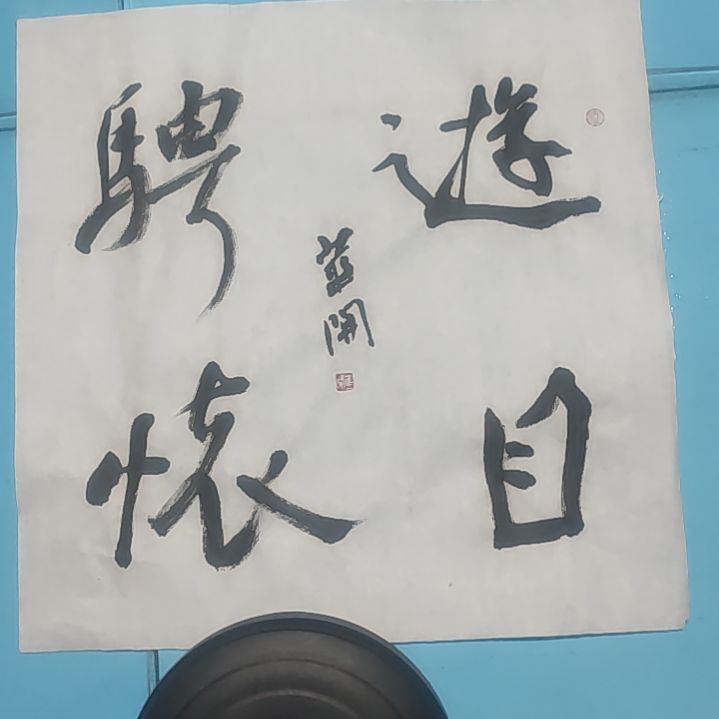 遊目
騁懷